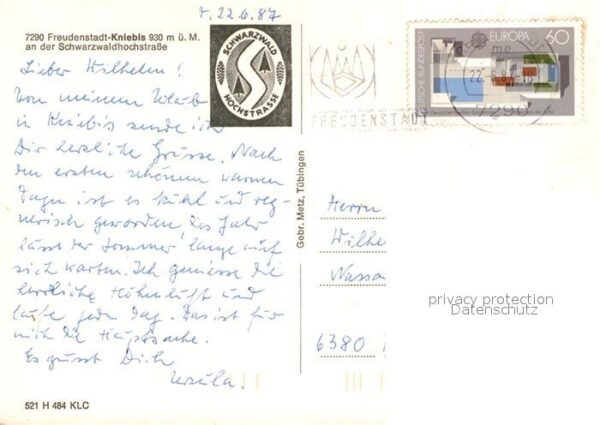 r. 22.6.87
7290 Freudenstadt-Kniebis 930 m ü. M.
an der Schwarzwaldhochstraße
Lieber Wilhelm!
Von meinem Urlaub
in Kniebis sende ich
Dir herzliche Grüsse. Nach
den ersten schönen warmen
Tagen ist es kühl und reg-
nerisch geworden, des Jahr
lässt der Sommer lange auf
sich warten. Ich geniesse die
herrliche Höhenluft und
laufe jeden Tag. Das ist für
mich die Hauptsache.
Es grüsst Dich
Ursula.
521 H 484 KLC
SCHWARZWALD
HOCHSTRASSE
Gebr. Metz, Tübingen
FREUDENSTADT
DEUTSCHE BUNDESPOST
EUROPA
60
22.
7290
Herrn
Wilhe
Wassa
6380
privacy protection
Datenschutz